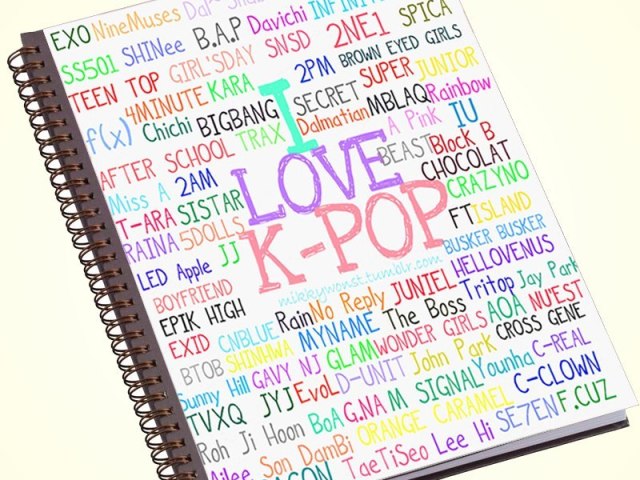 EXO NineMuses DaP INFINITE
SS501 SHINee B.A.P Davichi SPICA
TEEN TOP GIRL'SDAY SNSD 2NE1
4MINUTE KARA 2PM BROWN EYED GIRLS
f(x) Chichi BIGBANG SECRET SUPER JUNIOR
AFTER SCHOOL TRAX Dalmatian MBLAQ Rainbow
Miss A 2AM A Pink IU
T-ARA SISTAR BEAST Block B
RAINA 5DOLLS CHOCOLAT
LED Apple JJ CRAZYNO
I
LOVE
K-POP
mikkywonst.tumblr.com
FTISLAND
BUSKER BUSKER
BOYFRIEND HELLOVENUS
EPIK HIGH Rain No Reply JUNIEL Tritop Jay Park
EXID CNBLUE MYNAME The Boss AOA NUEST
BTOB SHINHWA GLAM WONDER GIRLS CROSS GENE
Sunny Hill GAVY NJ D-UNIT John Park Younha C-REAL
TVXQ JYJ EvoL G.NA M SIGNAL C-CLOWN
Roh Ji Hoon BoA ORANGE CARAMEL SE7EN F.CUZ
Ailee Son DamBi TaeTiSeo Lee Hi